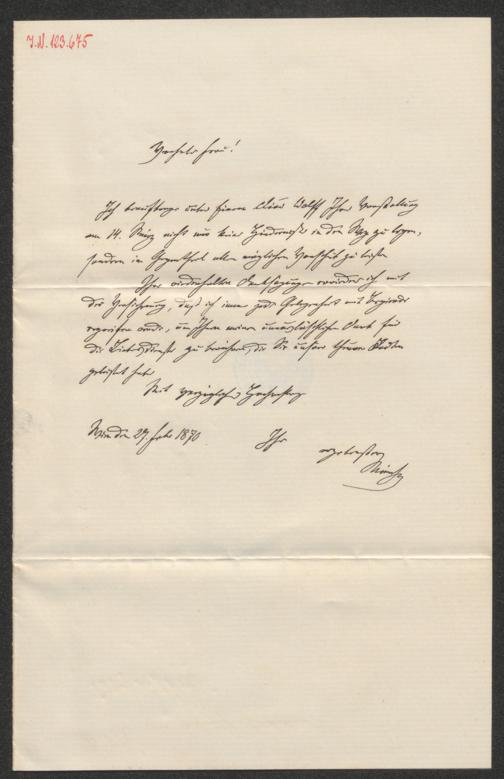 J.N. 123.675
Verehrte Frau!
Ich beauftrage unter Einem Wolff Ihrer Vorstellung
am 14. März nicht nur kein Hinderniß in den Weg zu legen,
sondern im Gegentheil allen möglichen Vorschub zu leisten
Ihre Danksagungen erwidere ich mit
der Versicherung, daß ich immer jede Gelegenheit mit Begierde
ergreifen werde, um Ihnen meinen Dank für
die Liebesdienste zu beweisen, die Sie unserer theuren
geleistet haben
Mit vorzüglicher Hochachtung
Wien den 27. Feb. 1870 Ihr
ergebenster